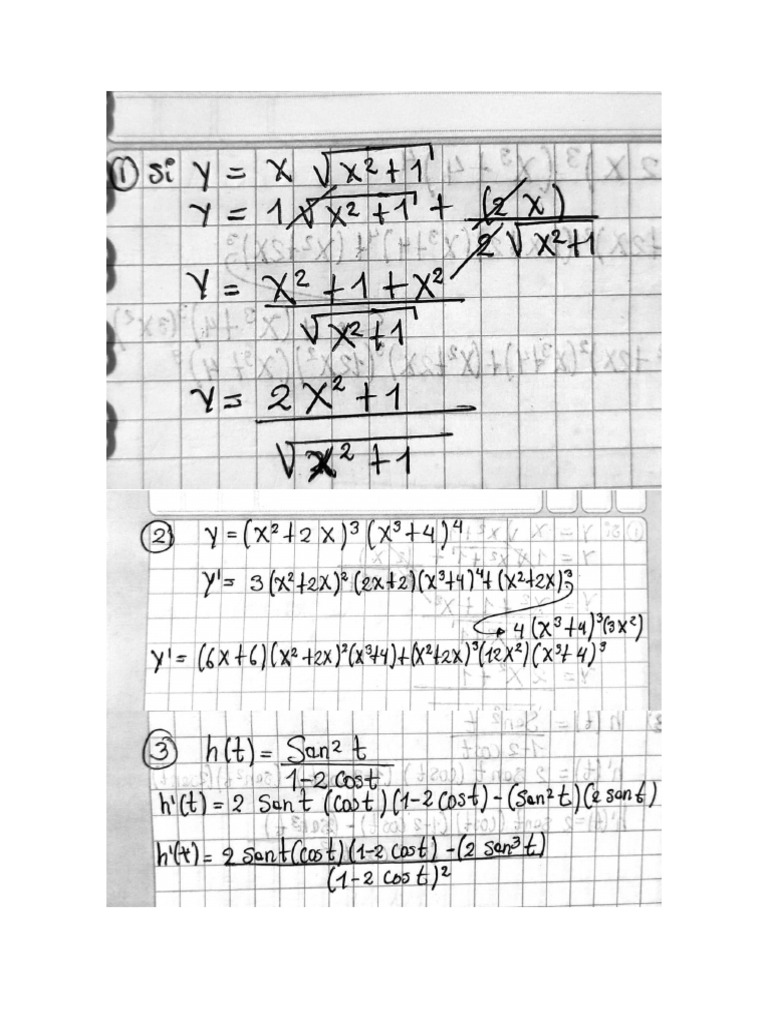 ① Si y = x √(x² + 1)
y = 1 √(x² + 1) + (2 x) / 2 √(x² + 1)
y = x² + 1 + x² / √(x² + 1)
y = 2x² + 1 / √(x² + 1)
② y = (x² + 2x)³ (x³ + 4)⁴
y' = 3(x² + 2x)² (2x + 2)(x³ + 4)⁴ + (x² + 2x)³
4 (x³ + 4)³ (3x²)
y' = (6x + 6)(x² + 2x)² (x³ + 4) + (x² + 2x)³ (12x²)(x³ + 4)³
③ h(t) = San² t / 1 - 2 cos t
h'(t) = 2 San t (cos t)(1 - 2 cos t) - (San² t)(2 san t)
h'(t) = 2 San t (cos t)(1 - 2 cos t) - (2 san³ t) / (1 - 2 cos t)²